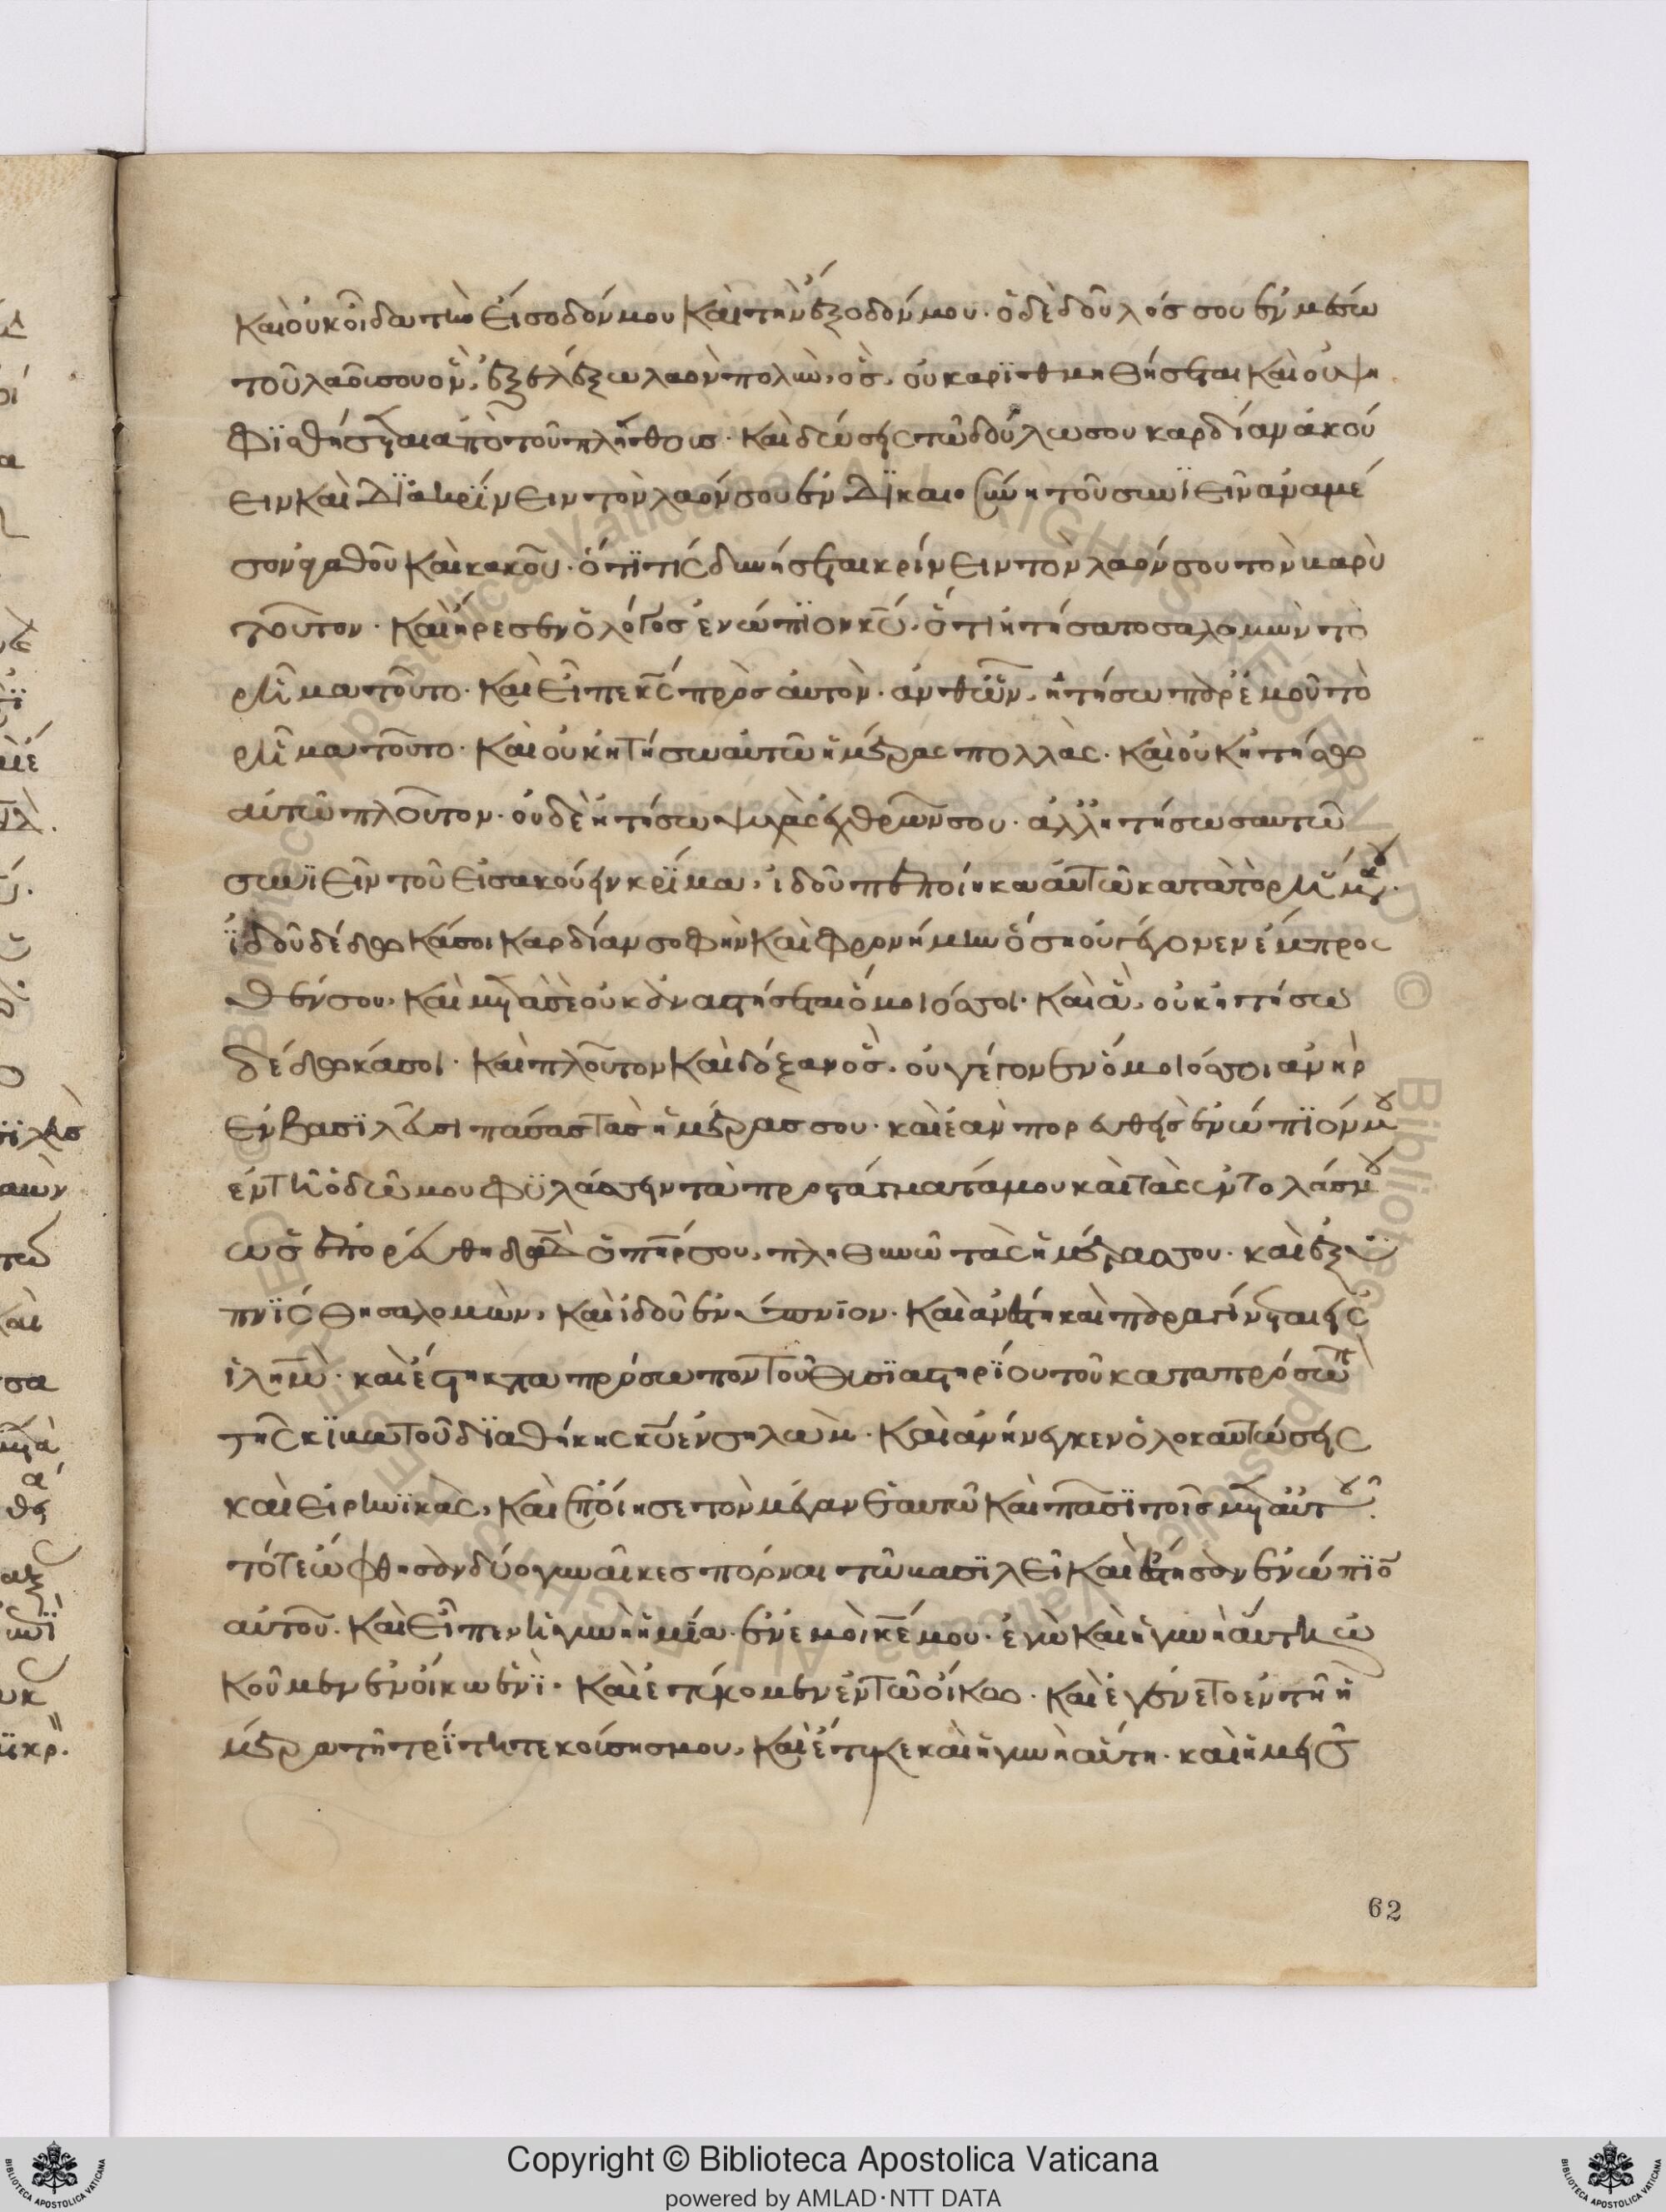 καὶ οὐκ οἶδα τὴν εἴσοδόν μου καὶ τὴν ἔξοδόν μου· ὁ δὲ δοῦλός σου ἐν μέσω
τοῦ λαοῦ σου ὃν ἐξελέξω λαὸν πολὺν, ὃς οὐκ ἀρϊθμηθήσεται καὶ οὐ ψη
φϊσθήσεται ἀπὸ τοῦ πλήθους· καὶ δώσεις τῶ δούλω σου καρδίαν ἀκού
ειν καὶ δϊακρίνειν τὸν λαόν σου ἐν δϊκαιοσύνη τοῦ συνϊεῖν ἀναμέ
σον ἀγαθοῦ καὶ κακοῦ· ὅτι τίς δυνήσεται κρίνειν τὸν λαόν σου τὸν βαρὺ
τοῦτον· καὶ ἤρεσεν ὁ λόγος ἐνώπϊον κυ, ὅτι ἠτήσατο σαλομὼν τὸ
ρῆμα τοῦτο· καὶ εἶπε κς πρὸς αὐτὸν· ἀνθ ὧν ἠτήσω παρ ἐμοῦ τὸ
ρῆμα τοῦτο· καὶ οὐκ ἠτήσω αὐτῶ ἡμέρας πολλὰς· καὶ οὐκ ἠτήσω
αὐτῶ πλοῦτον· οὐδὲ ἠτήσω ψυχὰς ἐχθρῶν σου· ἀλλ ἠτήσω σαυτῶ
συνϊεῖν τοῦ εἰσακούειν κρίμα, ἰδοὺ πεποίηκα αὐτῶ κατὰ τὸ ρῆμά
ἰδοὺ δέδωκά σοι καρδίαν σοφὴν καὶ φρονήμην ὅση οὐ γέγονεν ἔμπροσ
θέν σου, καὶ μετὰ σὲ οὐκ ἀναστήσεται ὅμοιός σοι· καὶ ἃ οὐκ ἠτήσω
δέδωκά σοι· καὶ πλοῦτον καὶ δόξαν ὃς οὐ γέγονεν ὅμοιός σοι ἀνὴρ
ἐν βασιλεῦσι πάσας τὰς ἡμέρας σου· καὶ ἐὰν πορευθεὶς ἐνώπϊόν μου
ἐν τῆ ὁδῶ μου φυλάσσειν τὰ προστάγματά μου καὶ τὰς ἐντολάς μου
ὡς ἐπορεύθη δαδ ὁ πηρ σου, πληθυνῶ τὰς ἡμέρας σου· καὶ ἐξυ
πνίσθη σαλομὼν, καὶ ἰδοὺ ἐνύπνϊον· καὶ ἀνέστη καὶ παραγίνεται εἰς
ἱλημ· καὶ ἔστη κατα πρόσωπον τοῦ θυσϊαστηρίου τοῦ κατα πρόσωπ
τῆς κϊβωτοῦ δϊαθήκης κυ ἐν σηλὼμ· καὶ ἀνήνεγκεν ὁλοκαυτώσεις
καὶ εἰρηνϊκὰς, καὶ ἐποίησε πότον μέγαν ἑαυτῶ καὶ πᾶσϊ τοῖς μετ αὐτοῦ.
τότε ὤφθησαν δύο γυναῖκες πόρναι τῶ βασϊλεῖ καὶ ἔστησαν ἐνώπϊον
αὐτοῦ. καὶ εἶπεν ἡ γυνὴ ἡ μία· ἐν ἐμοὶ κε μου· ἐγὼ καὶ ἡ γυνὴ αὕτη ὠ
κοῦμεν ἐν οἴκω ἑνὶ· καὶ ἐτέκομεν ἐν τῶ οἴκω· καὶ ἐγένετο ἐν τῆ ἡ
μέρα τῆ τρίτη τεκούσης μου, καὶ ἔτεκε καὶ ἡ γυνὴ αὕτη· καὶ ἡμεῖς
62
Copyright © Biblioteca Apostolica Vaticana
powered by AMLAD·NTT DATA